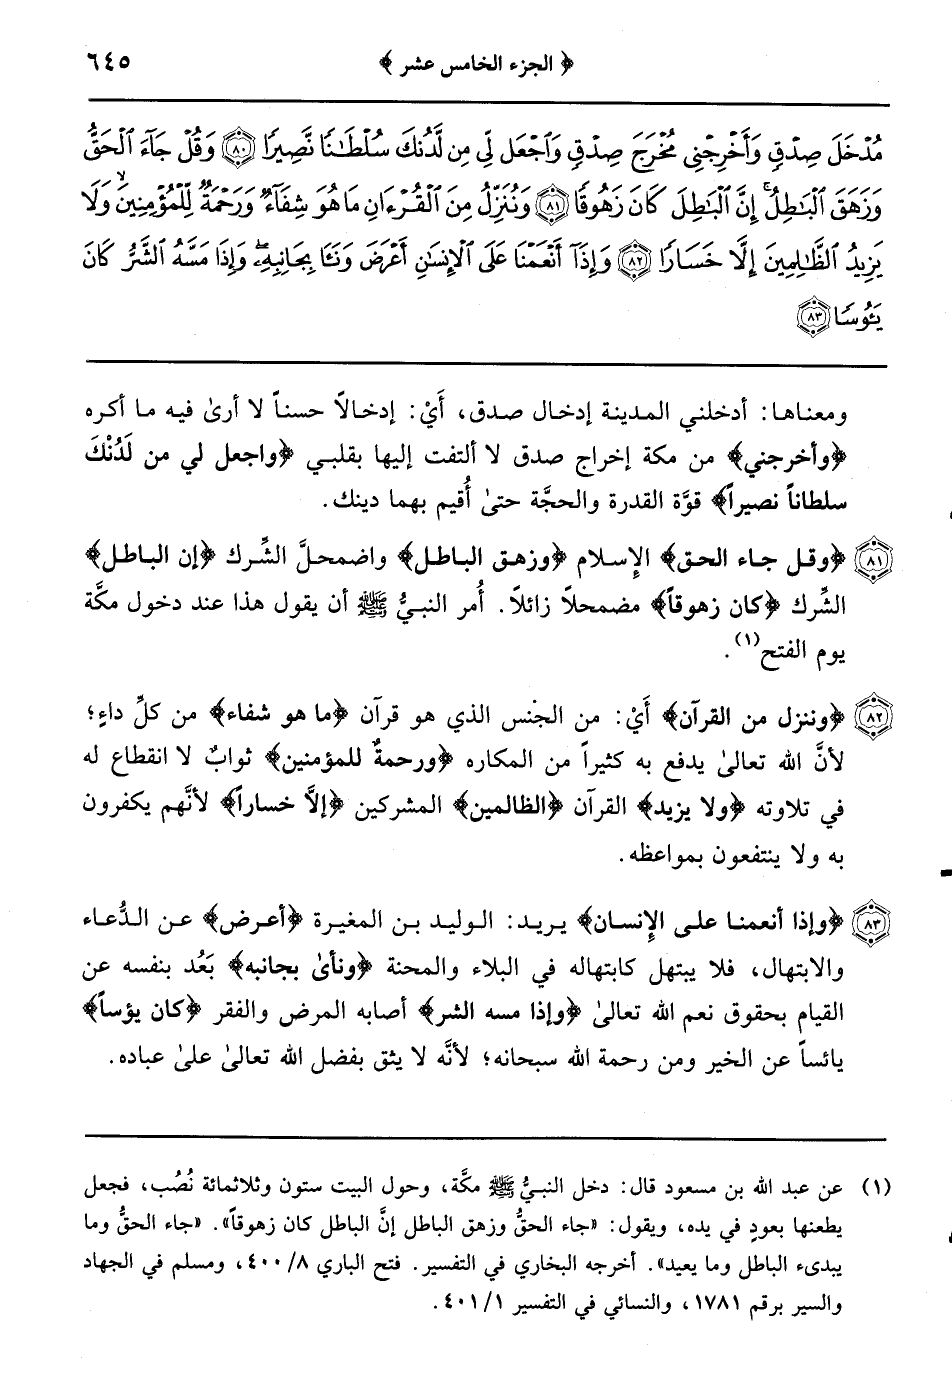 ﴿ الجزء الخامس عشر ﴾ ٦٤٥
مُدْخَلَ صِدْقٍ وَأَخْرِجْنِي مُخْرَجَ صِدْقٍ وَٱجْعَل لِّي مِن لَّدُنكَ سُلْطَٰنًا نَّصِيرًا ﴿٨٠﴾ وَقُلْ جَآءَ ٱلْحَقُّ
وَزَهَقَ ٱلْبَٰطِلُ ۚ إِنَّ ٱلْبَٰطِلَ كَانَ زَهُوقًا ﴿٨١﴾ وَنُنَزِّلُ مِنَ ٱلْقُرْءَانِ مَا هُوَ شِفَآءٌ وَرَحْمَةٌ لِّلْمُؤْمِنِينَ ۙ وَلَا
يَزِيدُ ٱلظَّٰلِمِينَ إِلَّا خَسَارًا ﴿٨٢﴾ وَإِذَآ أَنْعَمْنَا عَلَى ٱلْإِنسَٰنِ أَعْرَضَ وَنَـَٔا بِجَانِبِهِۦ ۖ وَإِذَا مَسَّهُ ٱلشَّرُّ كَانَ
يَـُٔوسًا ﴿٨٣﴾
ومعناها: أدخلني المدينة إدخال صدق، أَيْ: إدخالاً حسناً لا أرىٰ فيه ما أكره
﴿وأخرجني﴾ من مكة إخراج صدق لا ألتفت إليها بقلبي ﴿واجعل لي من لَدُنْكَ
سلطاناً نصيراً﴾ قوَّة القدرة والحجَّة حتىٰ أُقيم بهما دينك.
﴿٨١﴾ ﴿وقل جاء الحق﴾ الإسلام ﴿وزهق الباطل﴾ واضمحلَّ الشِّرك ﴿إن الباطل﴾
الشِّرك ﴿كان زهوقاً﴾ مضمحلاً زائلاً. أُمر النبيُّ ﷺ أن يقول هذا عند دخول مكَّة
يوم الفتح(١).
﴿٨٢﴾ ﴿وننزل من القرآن﴾ أَيْ: من الجنْس الذي هو قرآن ﴿ما هو شفاء﴾ من كلِّ داءٍ؛
لأنَّ الله تعالىٰ يدفع به كثيراً من المكاره ﴿ورحمةٌ للمؤمنين﴾ ثوابٌ لا انقطاع له
في تلاوته ﴿ولا يزيد﴾ القرآن ﴿الظالمين﴾ المشركين ﴿إلاَّ خساراً﴾ لأنَّهم يكفرون
به ولا ينتفعون بمواعظه.
﴿٨٣﴾ ﴿وإذا أنعمنا على الإنسان﴾ يريد: الوليد بن المغيرة ﴿أعرض﴾ عن الدُّعاء
والابتهال، فلا يبتهل كابتهاله في البلاء والمحنة ﴿ونأىٰ بجانبه﴾ بَعُد بنفسه عن
القيام بحقوق نعم الله تعالىٰ ﴿وإذا مسه الشر﴾ أصابه المرض والفقر ﴿كان يؤساً﴾
يائساً عن الخير ومن رحمة الله سبحانه؛ لأنَّه لا يثق بفضل الله تعالىٰ علىٰ عباده.
(١) عن عبد الله بن مسعود قال: دخل النبيُّ ﷺ مكَّة، وحول البيت ستون وثلاثمائة نُصُب، فجعل
يطعنها بعودٍ في يده، ويقول: «جاء الحقُّ وزهق الباطل إنَّ الباطل كان زهوقاً». «جاء الحقُّ وما
يبدىء الباطل وما يعيد». أخرجه البخاري في التفسير. فتح الباري ٤٠٠/٨، ومسلم في الجهاد
والسير برقم ١٧٨١، والنسائي في التفسير ٤٠١/١.